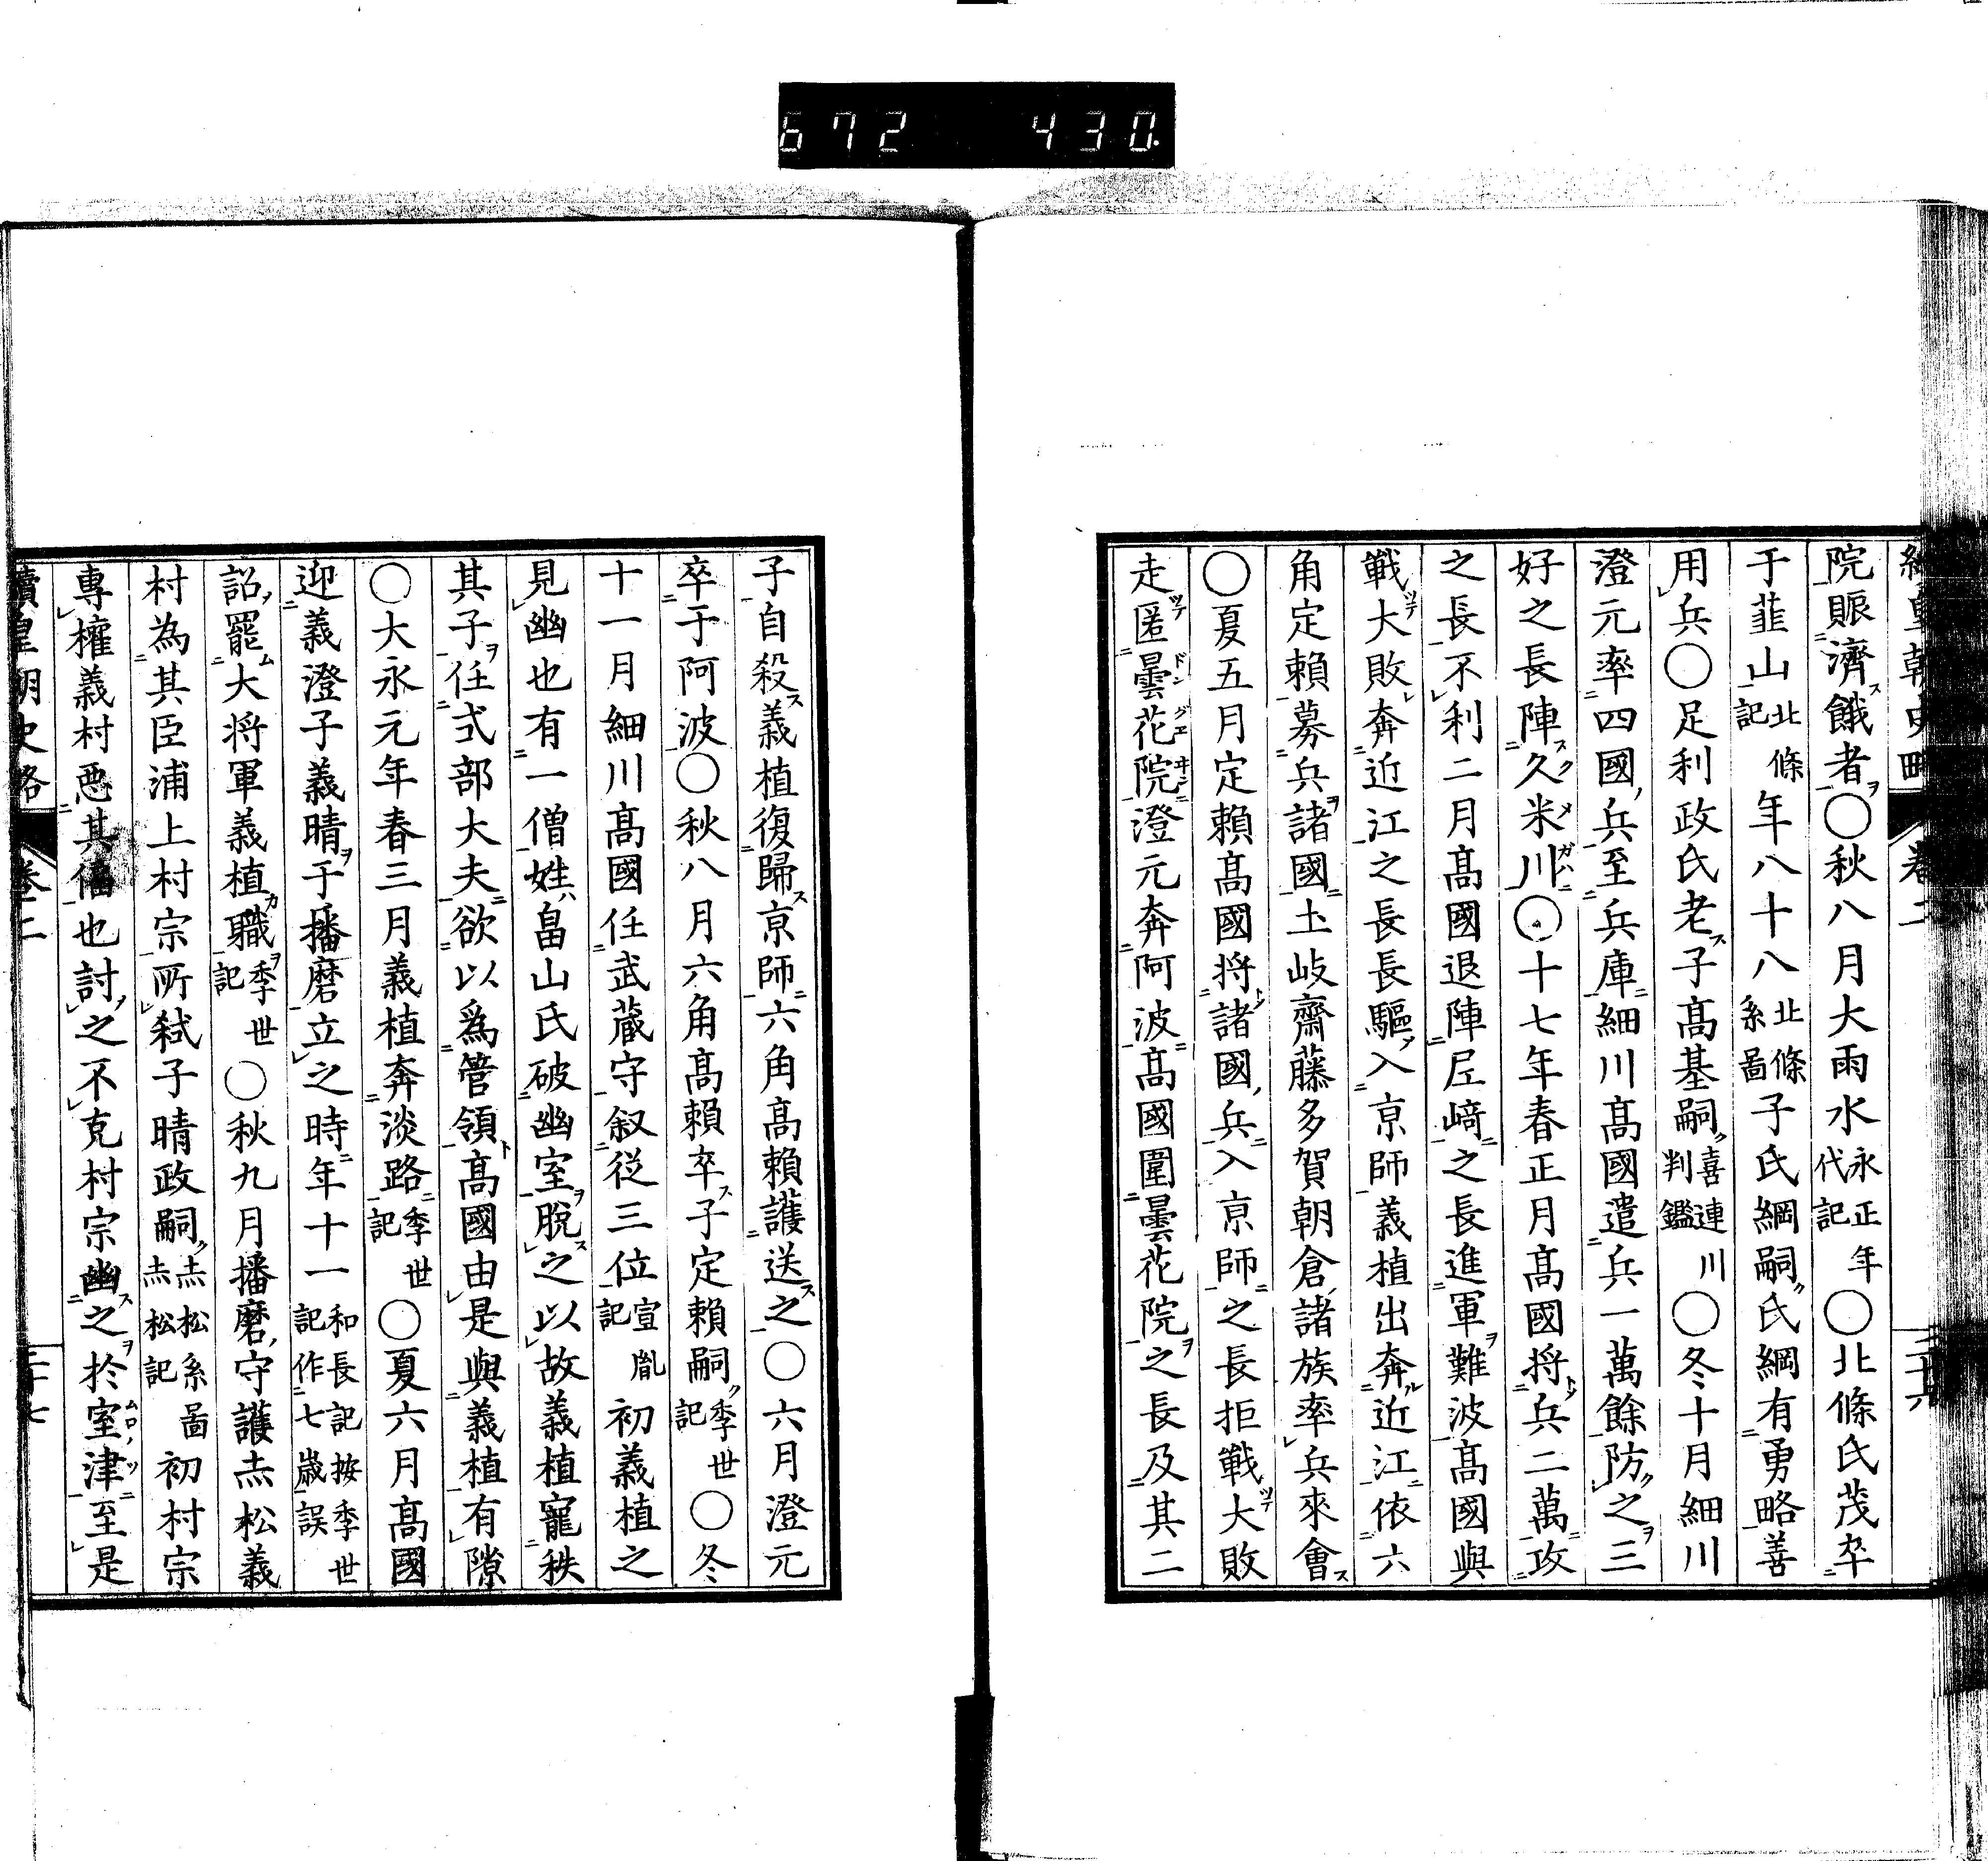 672 430
續皇朝史略 卷二 二十六
院賑濟餓者〇秋八月大雨水永正年代記〇北條氏茂卒
于韮山北條記年八十八北條系啚子氏綱嗣氏綱有勇略善
用兵〇足利政氏老子高基嗣喜連川判鑑〇冬十月細川
澄元率四國兵至兵庫細川高國遣兵一萬餘防之三
好之長陣久米川〇十七年春正月高國将兵二萬攻
之長不利二月高國退陣尼﨑之長進軍難波高國與
戰大敗奔近江之長長驅入京師義植出奔近江依六
角定賴募兵諸國土岐齋藤多賀朝倉諸族率兵來會
〇夏五月定賴高國将諸國兵入京師之長拒戰大敗
走匿曇花院澄元奔阿波高國圍曇花院之長及其二
子自殺義植復歸京師六角高賴護送之〇六月澄元
卒于阿波〇秋八月六角高賴卒子定賴嗣季世記〇冬
十一月細川高國任武藏守叙從三位宣胤記初義植之
見幽也有一僧姓畠山氏破幽室脫之以故義植寵秩
其子任式部大夫欲以爲管領高國由是與義植有隙
〇大永元年春三月義植奔淡路季世記〇夏六月高國
迎義澄子義晴于播磨立之時年十一和長記按季世記作七歲誤
詔罷大将軍義植職季世記〇秋九月播磨守護赤松義
村為其臣浦上村宗所弑子晴政嗣赤松系啚赤松記初村宗
專權義村惡其偪也討之不克村宗幽之於室津至是
續皇朝史略 卷二 二十七